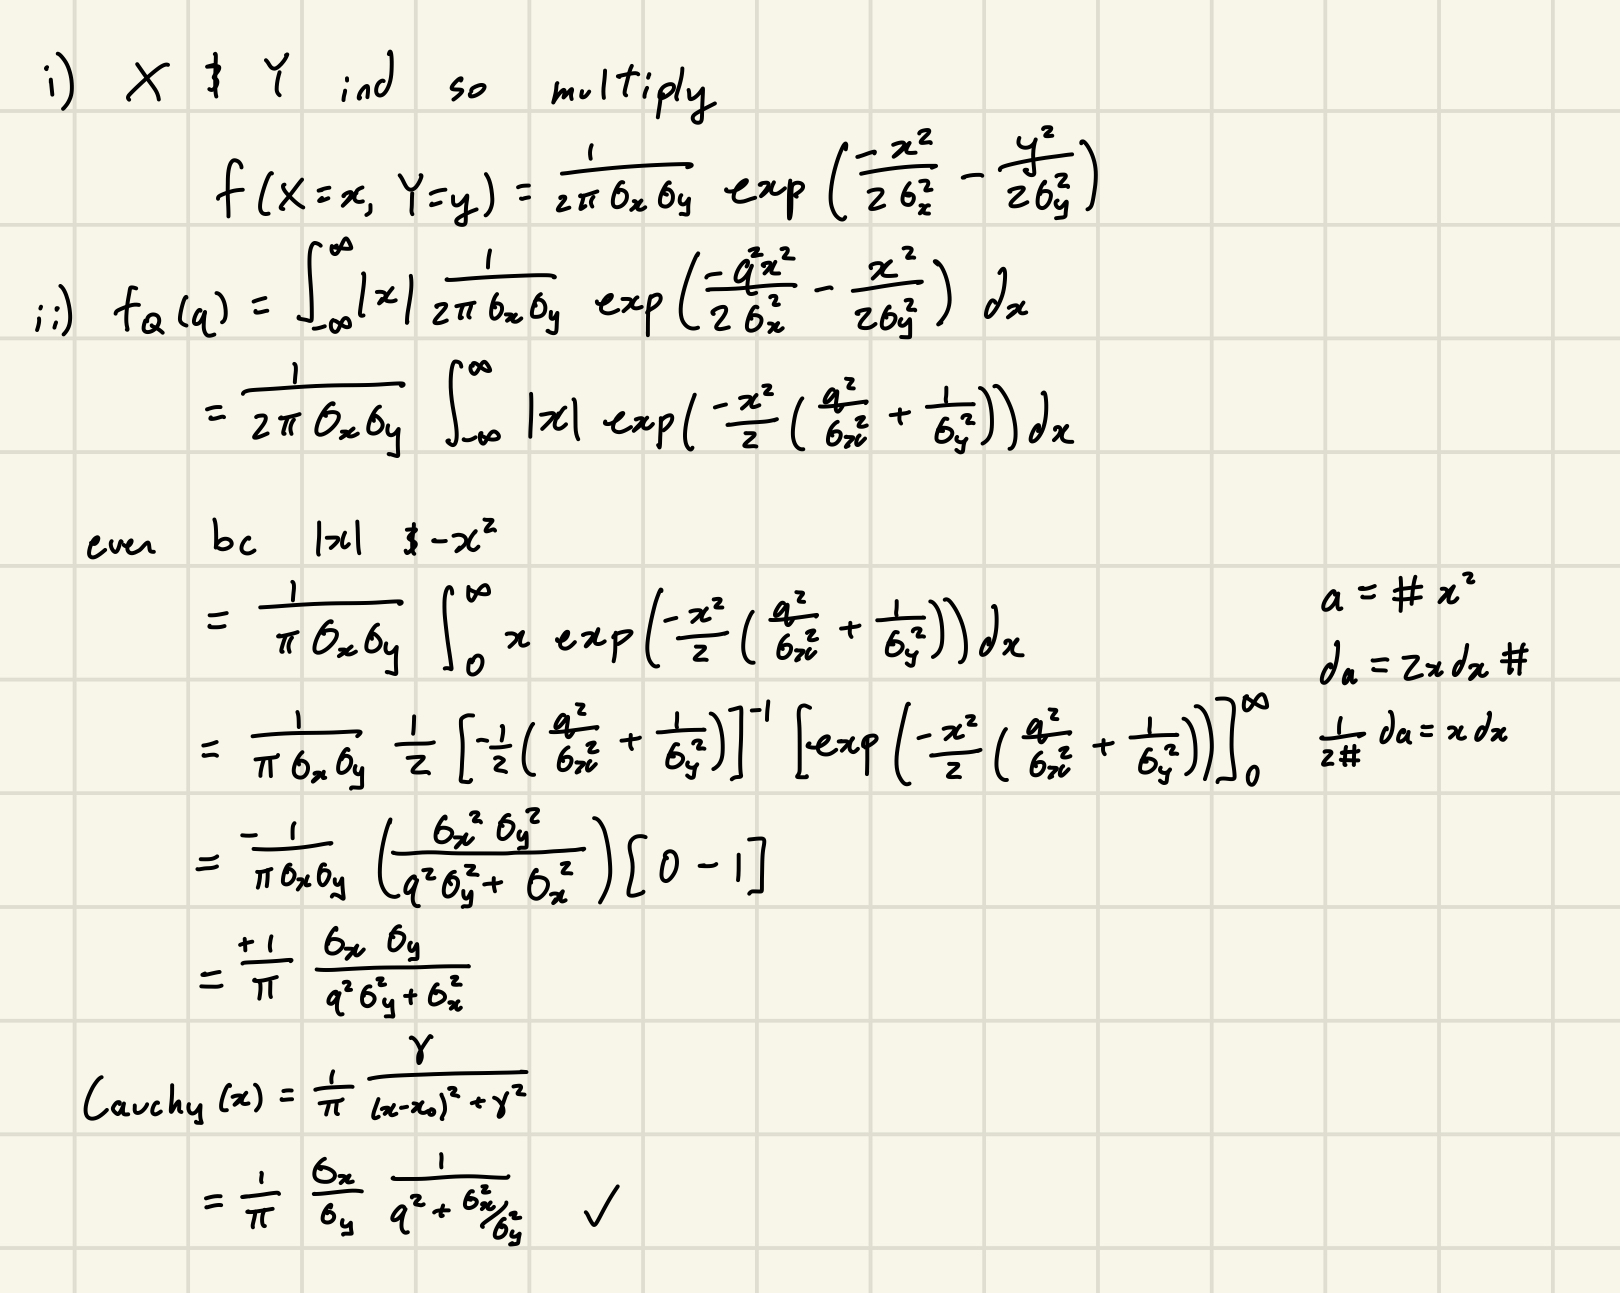 i) X & Y ind so multiply
f(X=x, Y=y) = 1/(2π σ_x σ_y) exp(-x²/(2σ_x²) - y²/(2σ_y²))
ii) f_Q(q) = ∫_{-∞}^{∞} |x| 1/(2π σ_x σ_y) exp(-q²x²/(2σ_x²) - x²/(2σ_y²)) dx
= 1/(2π σ_x σ_y) ∫_{-∞}^{∞} |x| exp(-x²/2 (q²/σ_x² + 1/σ_y²)) dx
even bc |x| & -x²
= 1/(π σ_x σ_y) ∫_0^∞ x exp(-x²/2 (q²/σ_x² + 1/σ_y²)) dx
a = # x²
da = 2x dx #
1/(2#) da = x dx
= 1/(π σ_x σ_y) 1/2 [-1/2 (q²/σ_x² + 1/σ_y²)]^{-1} [exp(-x²/2 (q²/σ_x² + 1/σ_y²))]_0^∞
= -1/(π σ_x σ_y) (σ_x² σ_y²/(q² σ_y² + σ_x²)) [0 - 1]
= +1/π σ_x σ_y/(q² σ_y² + σ_x²)
Cauchy(x) = 1/π γ/((x-x₀)² + γ²)
= 1/π σ_x/σ_y 1/(q² + σ_x²/σ_y²) ✓